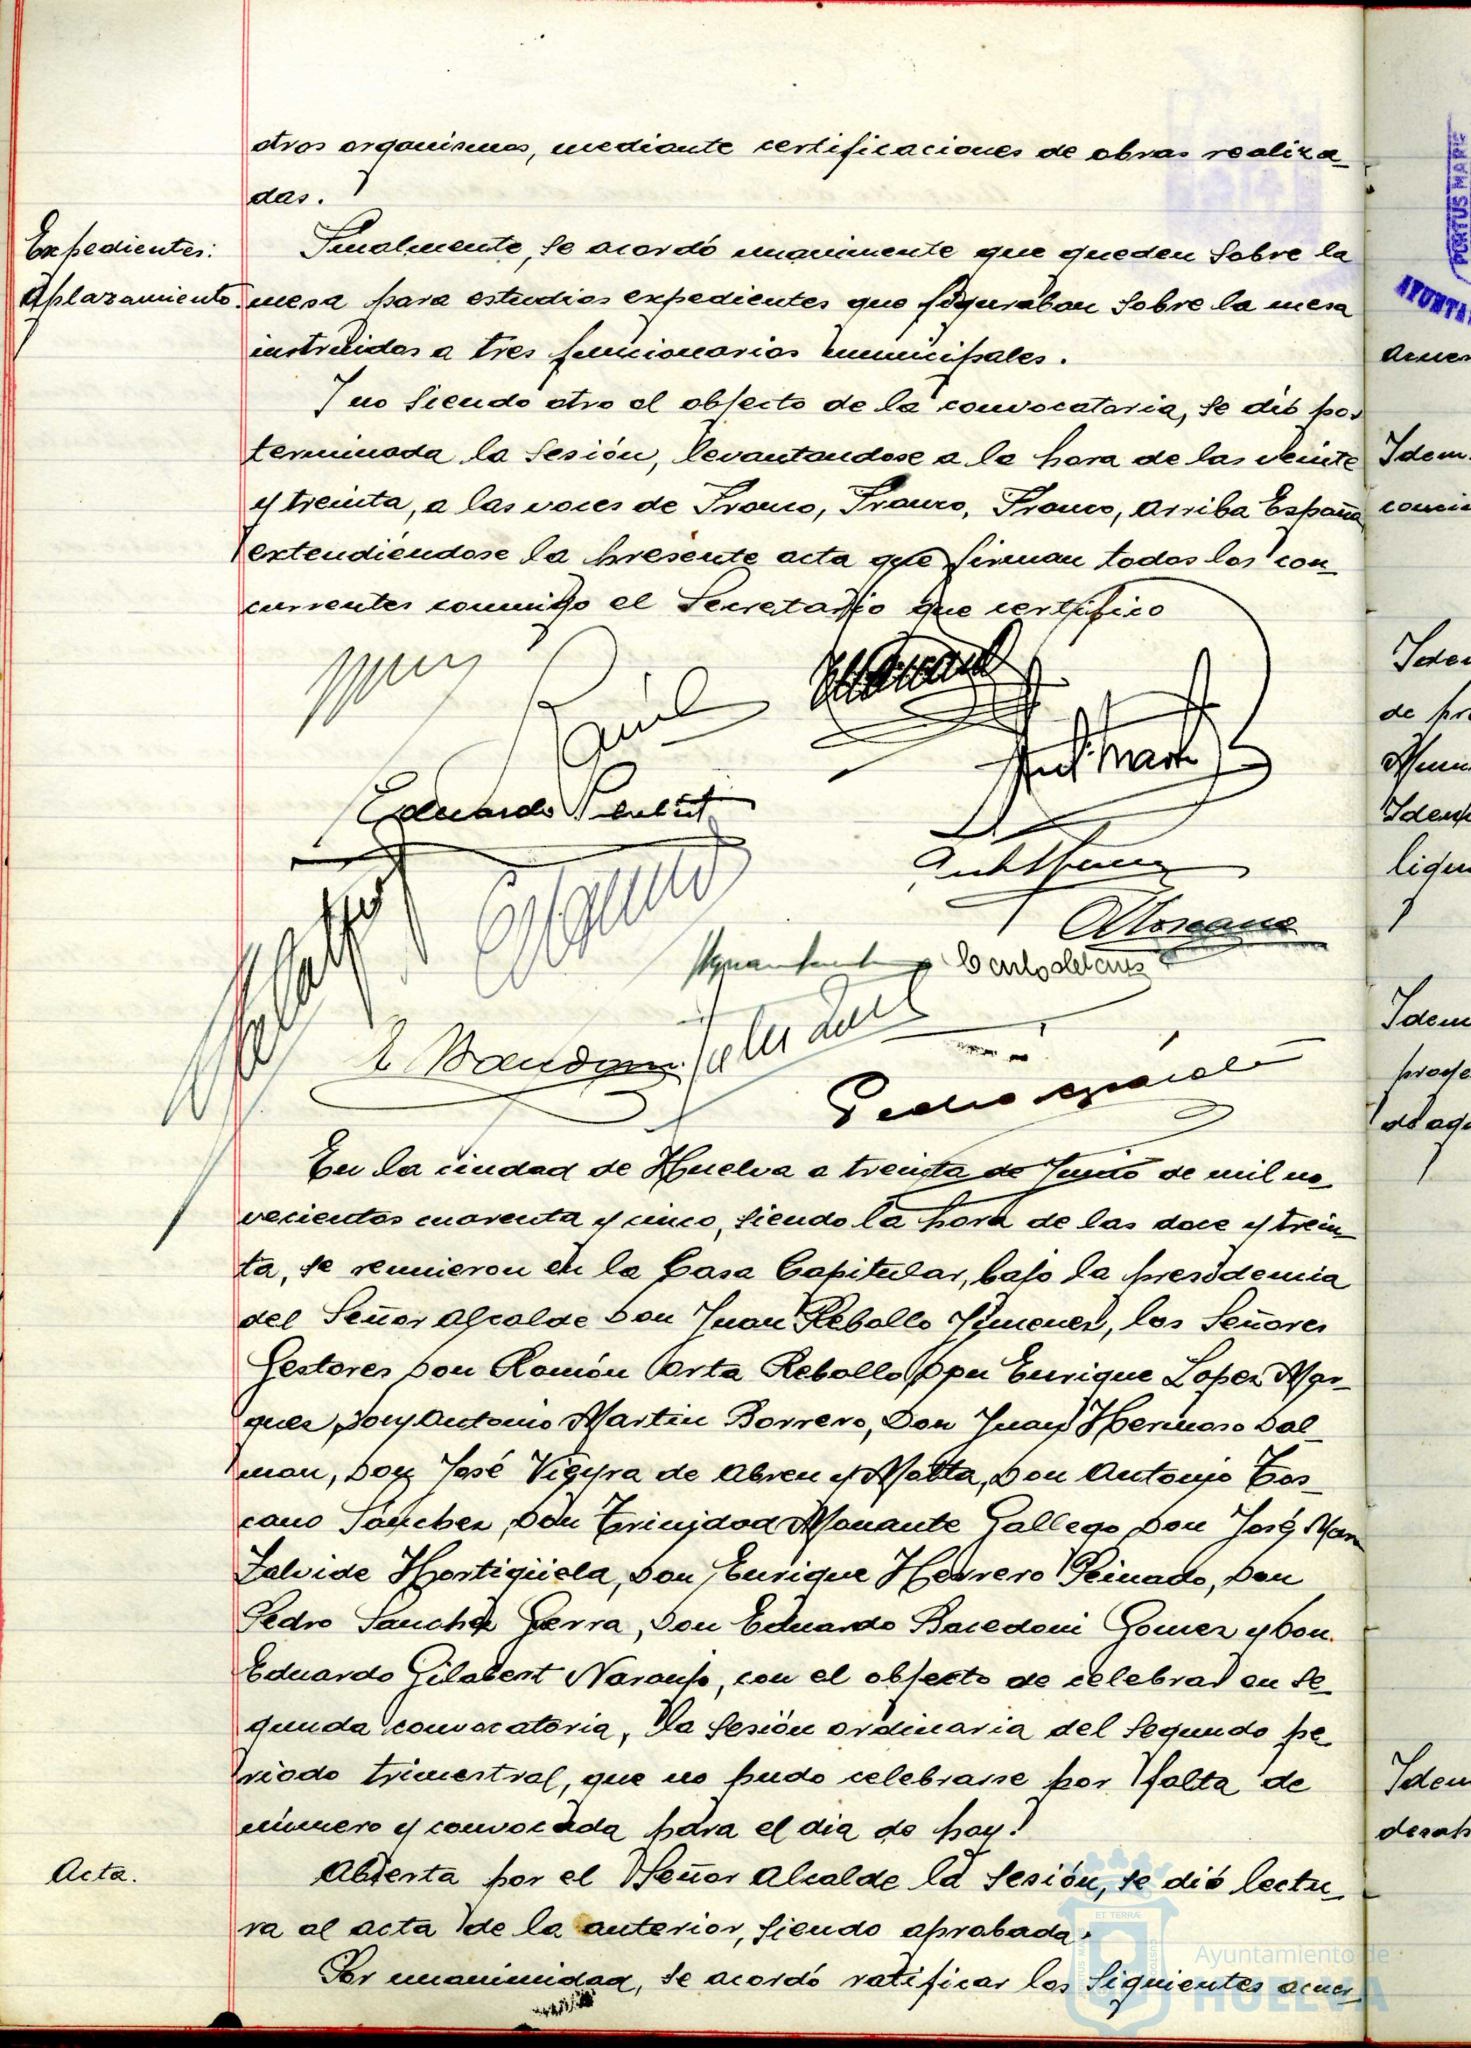 otros organismos, mediante certificaciones de obras realiza-
das.
Expedientes:
Aplazamiento.
Finalmente, se acordó unanimente que queden sobre la
mesa para estudios expedientes que figuraban sobre la mesa
instruidos a tres funcionarios municipales.
Y no siendo otro el objecto de la convocatoria, se dió por
terminada la sesión, levantandose a la hora de las veinte
y treinta, a las voces de Franco, Franco, Franco, Arriba España
extendiéndose la presente acta que firman todos los con-
currentes conmigo el Secretario que certifico
Eduardo
En la ciudad de Huelva a treinta de Junio de mil no-
vecientos cuarenta y cinco, siendo la hora de las doce y trein-
ta, se reunieron en la Casa Capitular, bajo la presidencia
del Señor Alcalde Don Juan Rebollo Jimenez, los Señores
Gestores Don Ramón Orta Rebollo, Don Enrique Lopez Mar-
quez, Don Antonio Martin Borrero, Don Juan Hermoso Dal-
mau, Don José de Abreu y Don Antonio Tos-
cano Sánchez, Don Trinidad Gallego, Don José
Zalvide Hortigüela, Don Enrique Herrero Peinado, Don
Pedro Sanchez Serra, Don Eduardo Gomez y Don
Eduardo Gilabert Naranjo, con el objecto de celebrar en se-
gunda convocatoria, la sesión ordinaria del segundo pe-
riodo trimestral, que no pudo celebrarse por falta de
número y convocada para el dia de hoy.
Acta.
Abierta por el Señor Alcalde la sesión, se dió lectu-
ra al acta de la anterior, siendo aprobada.
Por unanimidad, se acordó ratificar los siguientes acuer-
PORTUS MARIS
AYUNTA
Idem.
Idem
Idem
Ayuntamiento de
HUELVA